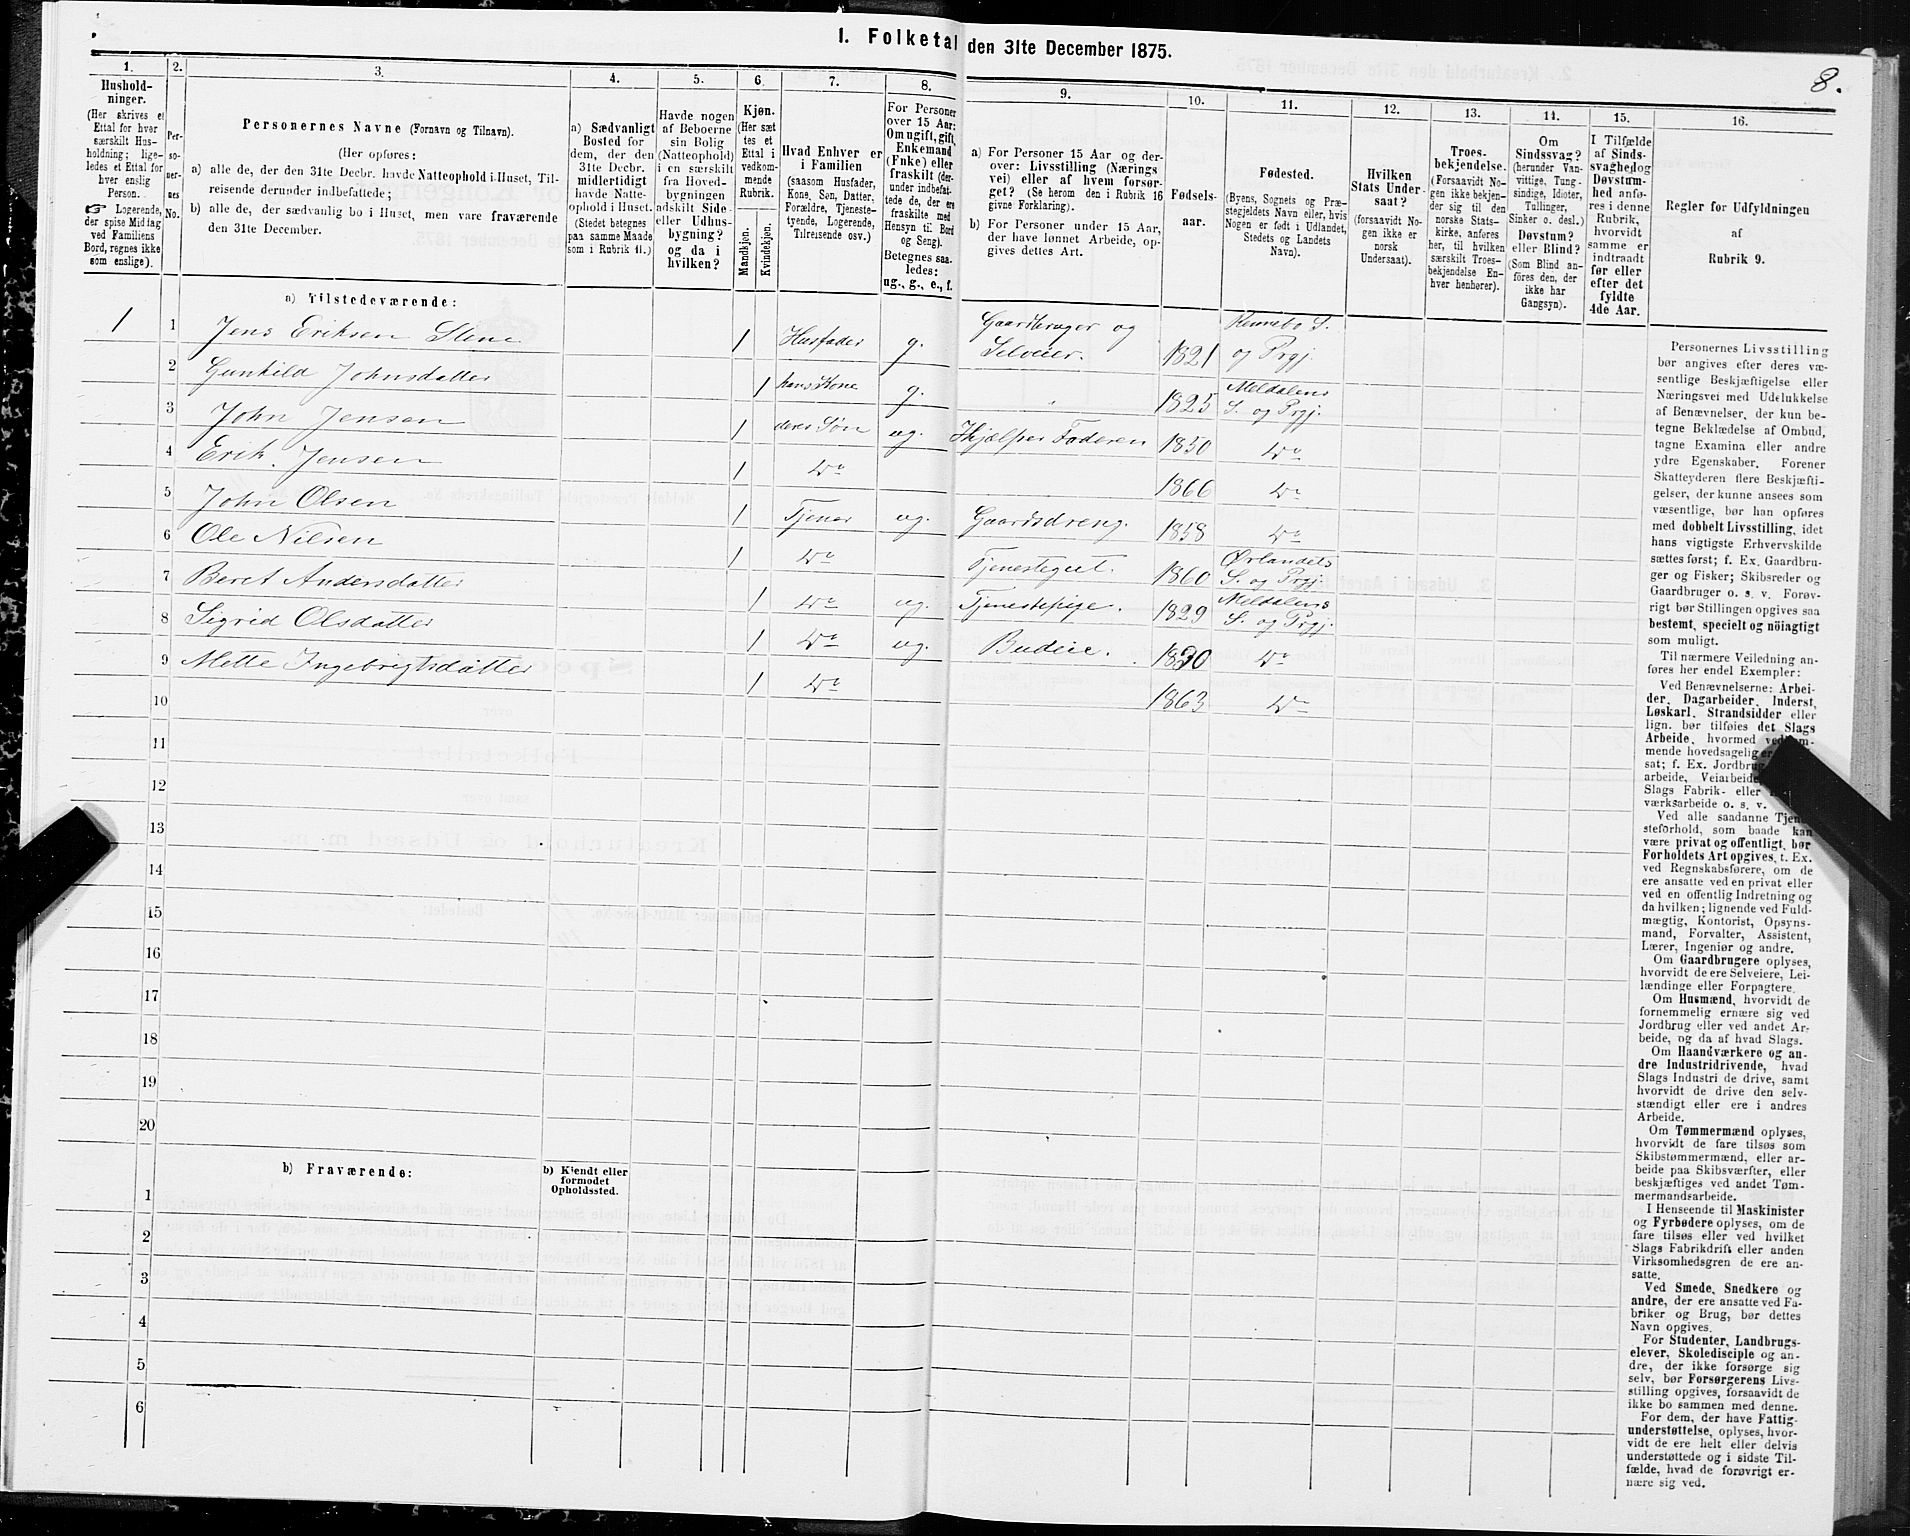 I. Folketal den 31te December 1875.
8.
1. 2. 3. 4. 5. 6. 7. 8. 9. 10. 11. 12. 13. 14. 15. 16.
Hushold-
ninger.
(Her skrives et
Ettal for hver
særskilt Hus-
holdning; lige-
ledes et Ettal for
hver enslig
Person.
☞ Logerende,
der spise Middag
ved Familiens
Bord, regnes ikke
som enslige).
Per-
so-
ner-
nes
No.
Personernes Navne (Fornavn og Tilnavn).
(Her opføres:
a) alle de, der den 31te Decbr. havde Natteophold i Huset, Til-
reisende derunder indbefattede;
b) alle de, der sædvanlig bo i Huset, men vare fraværende
den 31te December.
a) Sædvanligt
Bosted for
dem, der den
31te Decbr.
midlertidigt
havde Natte-
ophold i Huset.
(Stedet betegnes
paa samme Maade
som i Rubrik 11.)
Havde nogen
af Beboerne
sin Bolig
(Natteophold)
i en særskilt
fra Hoved-
bygningen
adskilt Side-
eller Udhus-
bygning?
og da i
hvilken?
Kjøn.
(Her sæt-
tes et
Ettal i
vedkom-
mende
Rubrik.
Mandkjøn.
Kvindekjøn.
Hvad Enhver er
i Familien
(saasom Husfader,
Kone, Søn, Datter,
Forældre, Tjeneste-
tyende, Logerende,
Tilreisende osv.)
For Personer
over 15 Aar:
Om ugift, gift,
Enkemand
(Enke) eller
fraskilt (der-
under indbefat-
tede de, der ere
fraskilte med
Hensyn til Bord
og Seng).
Betegnes saa-
ledes:
ug., g., e., f.
a) For Personer 15 Aar og der-
over: Livsstilling (Nærings-
vei) eller af hvem forsør-
get? (Se herom den i Rubrik 16
givne Forklaring).
b) For Personer under 15 Aar,
der have lønnet Arbeide, op-
gives dettes Art.
Fødsels-
aar.
Fødested.
(Byens, Sognets og Præ-
stegjeldets Navn eller, hvis
Nogen er født i Udlandet,
Stedets og Landets
Navn).
Hvilken
Stats Under-
saat?
(forsaavidt No-
gen ikke er
norsk
Undersaat).
Troes-
bekjendelse.
(Forsaavidt No-
gen ikke bekjen-
der sig til den
norske Stats-
kirke, anføres
her, til hvilken
særskilt Troes-
bekjendelse En-
hver henhører).
Om
Sindssvag?
(herunder Van-
vittige, Tung-
sindige, Idioter,
Tullinger,
Sinker o. desl.)
Døvstum?
eller Blind?
(Som Blind an-
føres den, der
ikke har
Gangsyn).
I Tilfælde
af Sinds-
svaghed og
Døvstum-
hed anfø-
res i denne
Rubrik,
hvorvidt
samme er
indtraadt
før eller
efter det
fyldte
4de Aar.
Regler for Udfyldningen
af
Rubrik 9.
a) Tilstedeværende:
1 1 Jens Eriksen Stene 1 Husfader g. Gaardbruger og Selveier. 1821 Rennebo S. og Prgj.
2 Gunhild Johnsdatter 1 hans Kone g. " 1825 Meldalens S. og Prgj.
3 John Jensen 1 deres Søn ug. Hjælper Faderen 1850 Do
4 Erik Jensen 1 Do 1866 Do
5 John Olsen 1 Tjener ug. Gaardsdreng. 1858 Do
6 Ole Nilsen 1 Do Tjenestegut. 1860 Ørlandets S. og Prgj.
7 Beret Andersdatter 1 Do ug. Tjenestepige. 1829 Meldalens S. og Prgj.
8 Sigrid Olsdatter 1 Do ug. Budeie. 1830 Do
9 Mette Ingebrigtsdatter 1 Do 1863 Do
10
11
12
13
14
15
16
17
18
19
20
b) Fraværende:
b) Kjendt eller
formodet
Opholdssted.
1
2
3
4
5
6
Personernes Livsstilling
bør angives efter deres væ-
sentlige Beskjæftigelse eller
Næringsvei med Udelukkelse
af Benævnelser, der kun be-
tegne Beklædelse af Ombud,
tagne Examina eller andre
ydre Egenskaber. Forener
Skatteyderen flere Beskjæfti-
gelser, der kunne ansees som
væsentlige, bør han opføres
med dobbelt Livsstilling, idet
hans vigtigste Erhvervskilde
sættes først; f. Ex. Gaardbru-
ger og Fisker; Skibsreder og
Gaardbruger o. s. v. Forøv-
rigt bør Stillingen opgives saa
bestemt, specielt og nöiagtigt
som muligt.
Til nærmere Veiledning an-
føres her endel Exempler:
Ved Benævnelserne: Arbei-
der, Dagarbeider, Inderst,
Løskarl, Strandsidder eller
lign. bør tilføies det Slags
Arbeide, hvormed
mende hovedsagelig er
sat; f. Ex. Jordbrug
arbeide, Veiarbeide
Slags Fabrik- eller
værksarbeide o. s. v.
Ved alle saadanne Tjene-
steforhold, som baade kan
være privat og offentligt, bør
Forholdets Art opgives, t. Ex.
ved Regnskabsførere, om de
ere ansatte ved en privat eller
ved en offentlig Indretning og
da hvilken; lignende ved Fuld-
mægtig, Kontorist, Opsyns-
mand, Forvalter, Assistent,
Lærer, Ingeniør og andre.
Om Gaardbrugere oplyses,
hvorvidt de ere Selveiere, Lei-
lændinge eller Forpagtere.
Om Husmænd, hvorvidt de
fornemmelig ernære sig ved
Jordbrug eller ved andet Ar-
beide, og da af hvad Slags.
Om Haandværkere og an-
dre Industridrivende, hvad
Slags Industri de drive, samt
hvorvidt de drive den selv-
stændigt eller ere i andres
Arbeide.
Om Tømmermænd oplyses,
hvorvidt de fare tilsøs som
Skibstømmermænd, eller ar-
beide paa Skibsværfter, eller
beskjæftiges ved andet Tøm-
mermandsarbeide.
I Henseende til Maskinister
og Fyrbødere oplyses, om de
fare tilsøs eller ved hvilket
Slags Fabrikdrift eller anden
Virksomhedsgren de ere an-
satte.
Ved Smede, Snedkere og
andre, der ere ansatte ved Fa-
briker og Brug, bør dettes
Navn opgives.
For Studenter, Landbrugs-
elever, Skoledisciple og an-
dre, der ikke forsørge sig
selv, bør Forsørgerens Livs-
stilling opgives, forsaavidt de
ikke bo sammen med denne.
For dem, der have Fattig-
understøttelse, oplyses, hvor-
vidt de ere helt eller delvis
understøttede og i sidste Til-
fælde, hvad de forøvrigt er-
nære sig ved.